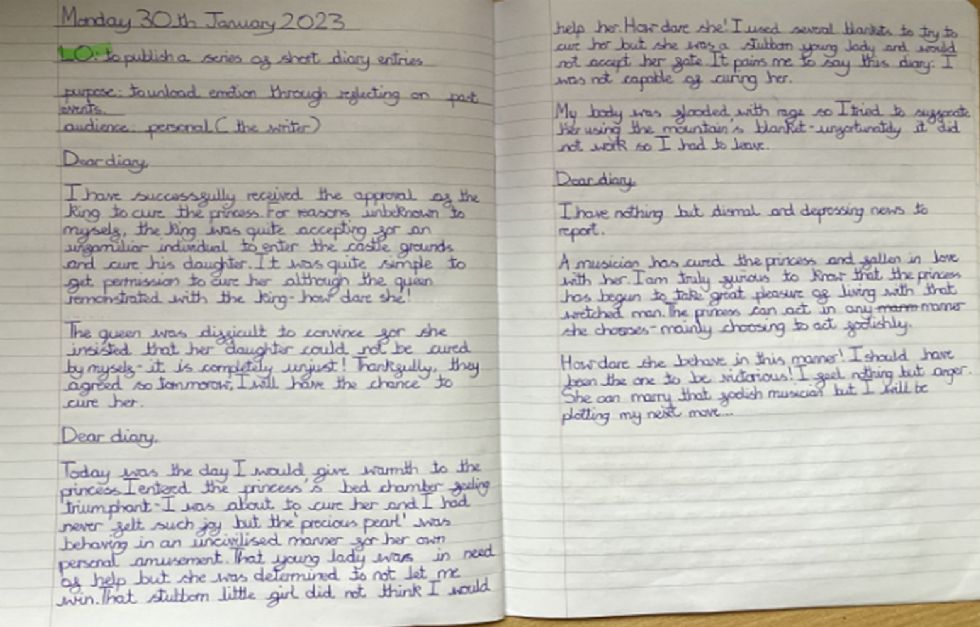 Monday 30th January 2023
LO: to publish a series of short diary entries
purpose: to unload emotion through reflecting on past
events.
audience: personal ( the writer)
Dear diary,
I have successfully received the approval of the
King to cure the princess. For reasons unbeknown to
myself, the King was quite accepting for an
unfamiliar individual to enter the castle grounds
and cure his daughter. It was quite simple to
get permission to cure her although the queen
remonstrated with the King - how dare she!
The queen was difficult to convince for she
insisted that her daughter could not be cured
by myself - it is completely unjust! Thankfully, they
agreed so tommorow, I will have the chance to
cure her.
Dear diary,
Today was the day I would give warmth to the
princess. I entered the princess's bed chamber feeling
triumphant - I was about to cure her and I had
never felt such joy but the 'precious pearl' was
behaving in an uncivilised manner for her own
personal amusement. That young lady was in need
of help but she was determined to not let me
win. That stubborn little girl did not think I would
help her. How dare she! I used several blankets to try to
cure her but she was a stubborn young lady and would
not accept her fate. It pains me to say this diary: I
was not capable of curing her.
My body was flooded with rage so I tried to suffocate
her using the mountain's blanket - unfortunately it did
not work so I had to leave.
Dear diary,
I have nothing but dismal and depressing news to
report.
A musician has cured the princess and fallen in love
with her. I am truly furious to know that the princess
has begun to take great pleasure of living with that
wretched man. The princess can act in any manner
she chooses - mainly choosing to act fodishly.
How dare she behave in this manner! I should have
been the one to be victorious! I feel nothing but anger.
She can marry that fodish musician but I will be
plotting my next move...